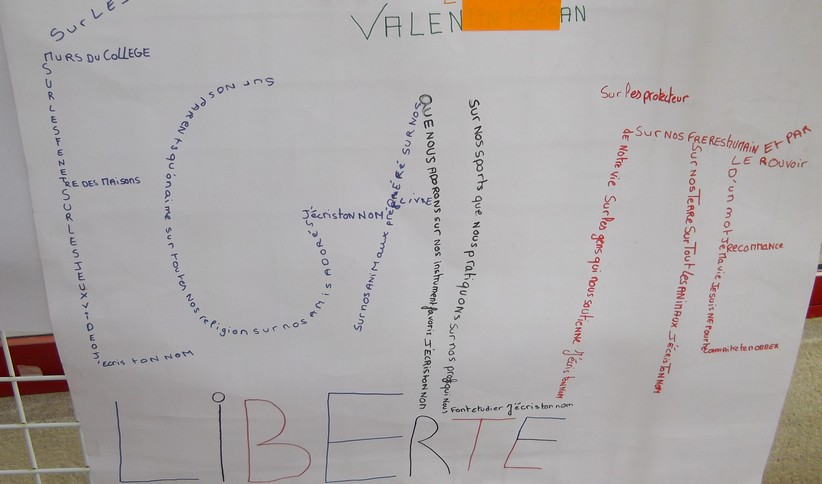 VALEN
AN
SUR LES
MURS DU COLLEGE
SUR LES FENETRE DES MAISONS
SUR LES JEUX VIDEO J'écris TON NOM
SUR NOS PARENTS qu'on aime sur toutes nos religion sur nos amis ADORÉS
J'écris TON NOM
SUR NOS ANIMAUX PRÉFÉRÉ SUR NOS
LIVRE
QUE NOUS ADORONS SUR NOS instrument favoris J'ÉCRIS TON NON
SUR NOS SPORTS que NOUS pratiquons sur nos profs qui nous
Font etudier J'écris ton nom
Sur les protecteur
de notre vie Sur les gens qui nous soutienne J'écris ton nom
SUR NOS FRERES HUMAIN ET PAR
LE ROUVOIR
SUR NOS TERRE SUR TOUT les ANIMAUX J'ÉCRIS TON NOM
D'un mot Je
Recommance
ma vie JE suis NE POUR te
Connaite te nommer
LIBERTE